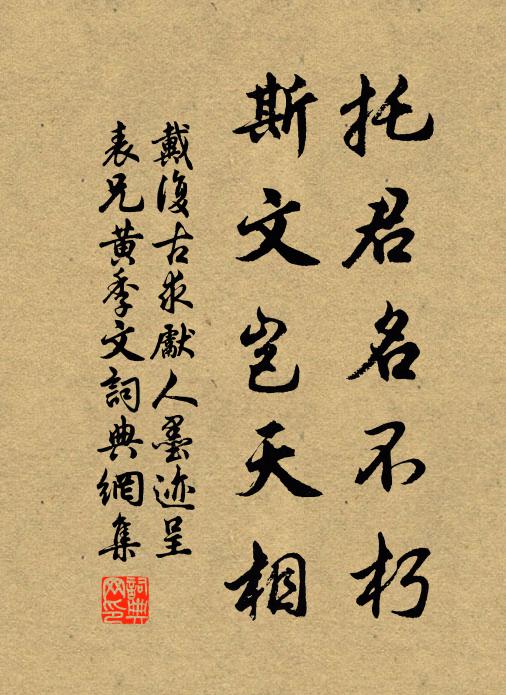 托君名不朽
斯文岂天相
戴復古求獻人墨迹呈
表兄黃季文詞典網集
詞典
网印